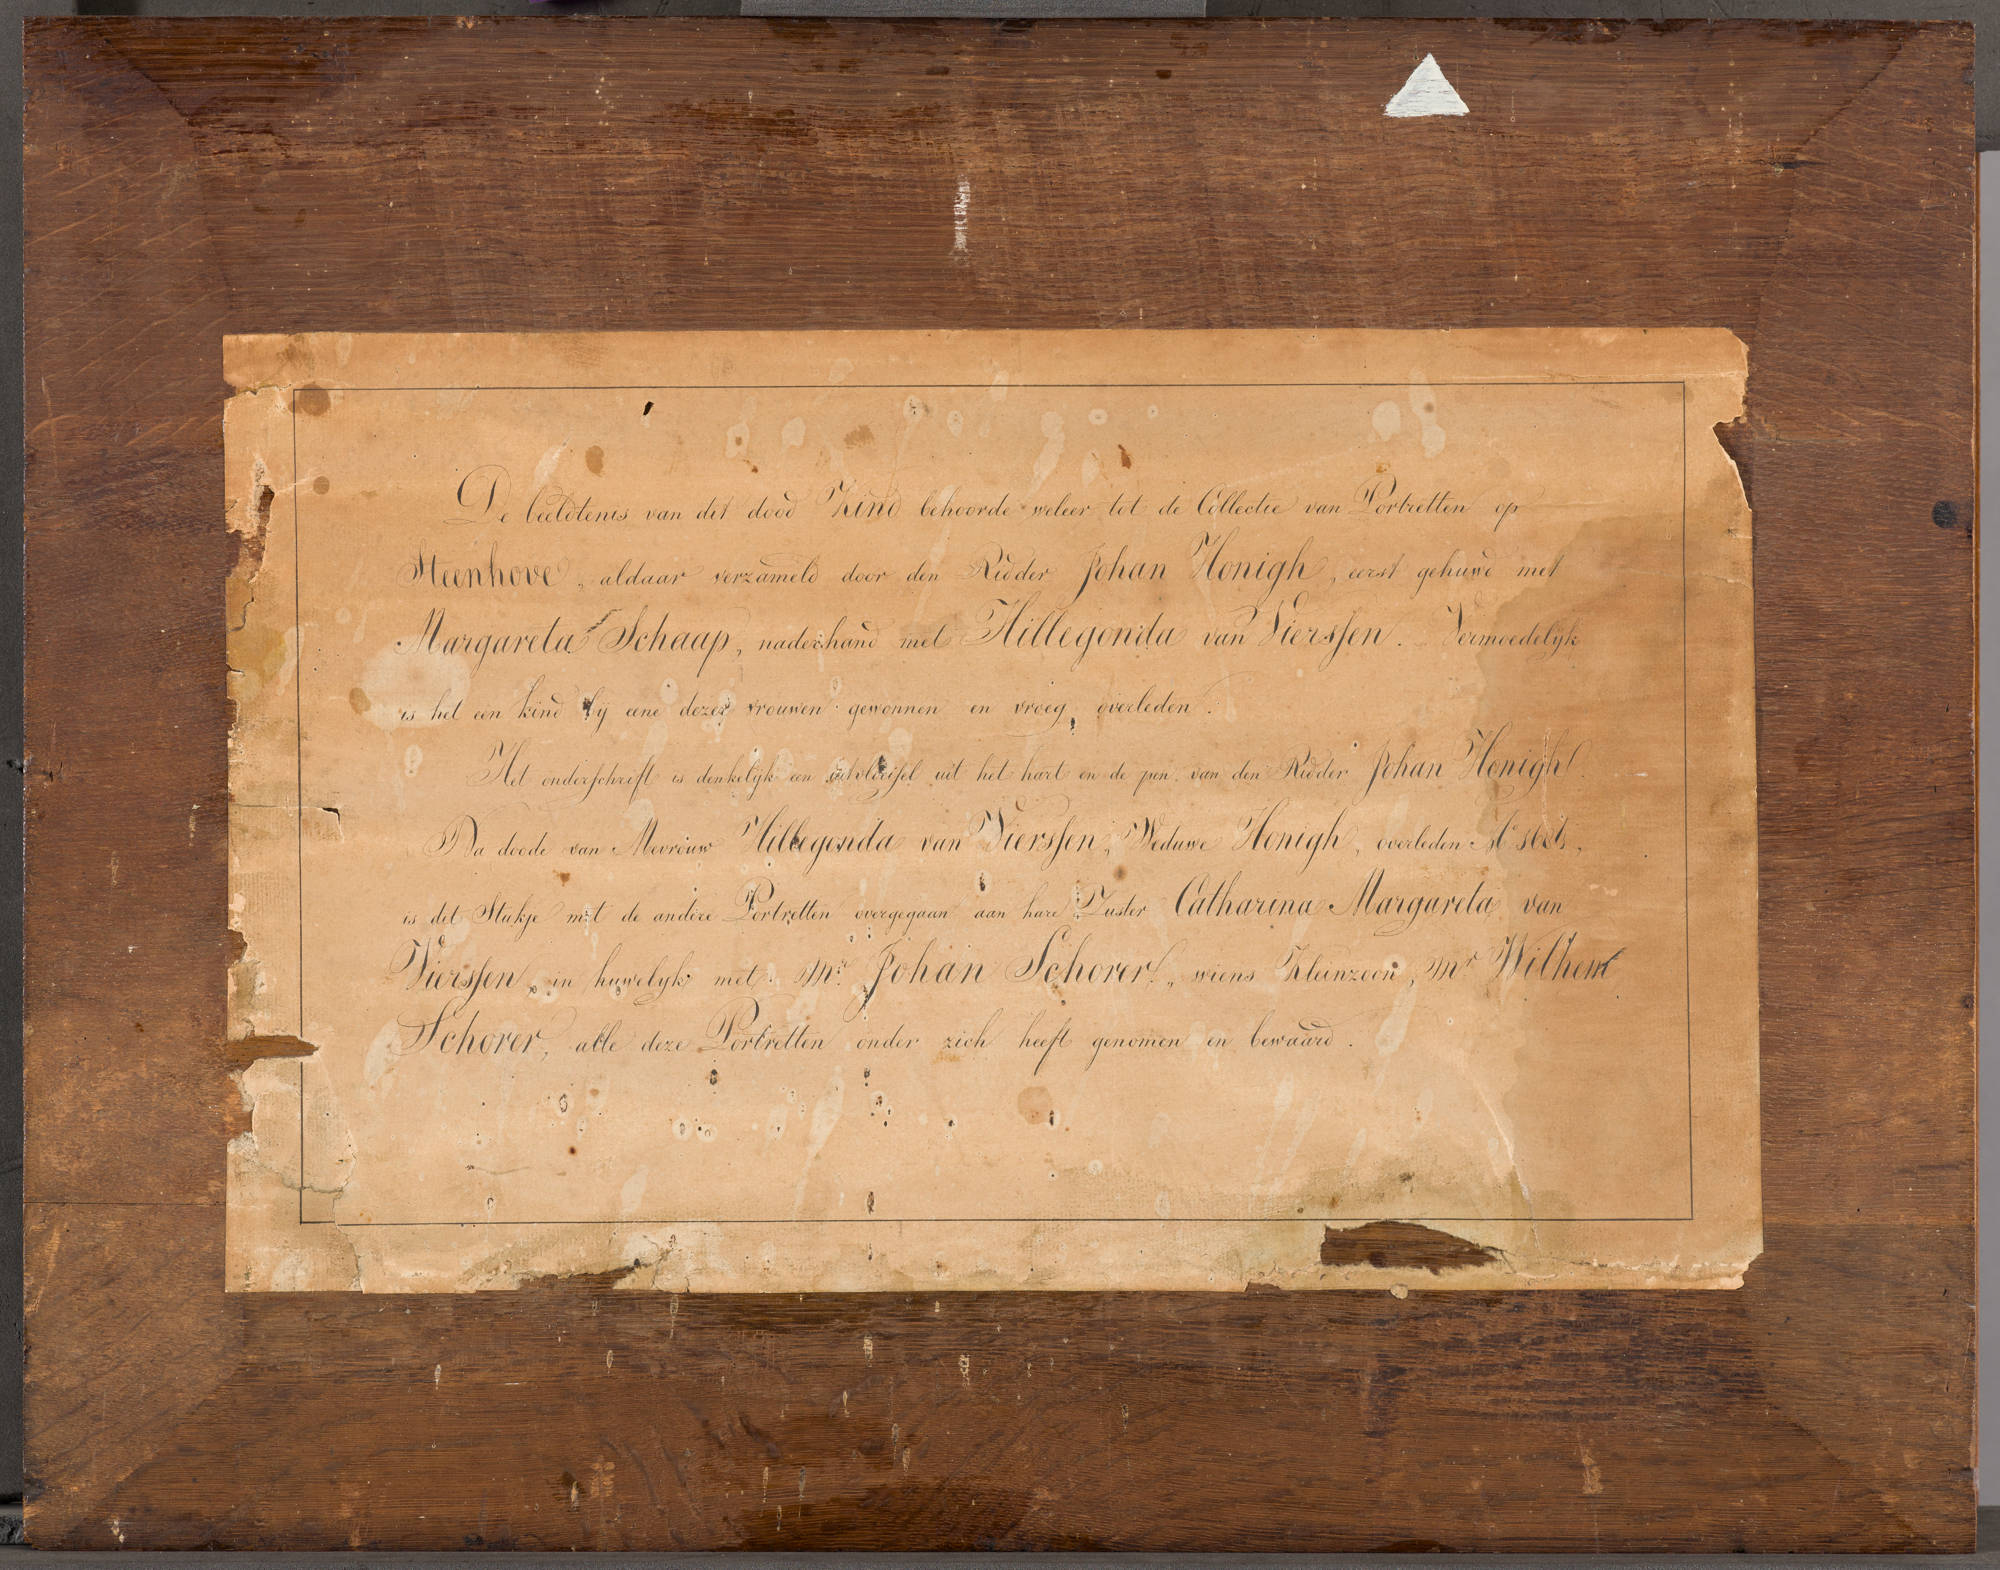 De beeldtenis van dit dood Kind behoorde weleer tot de Collectie van Portretten op
Steenhove, aldaar verzameld door den Ridder Johan Honigh, eerst gehuwd met
Margareta Schaap, naderhand met Hillegonda van Vierssen. Vermoedelijk
is het een kind bij eene dezer vrouwen gewonnen en vroeg overleden.
Het onderschrift is denkelijk een uitvloeisel uit het hart en de pen van den Ridder Johan Honigh.
Na doode van Mevrouw Hillegonda van Vierssen, Weduwe Honigh, overleden
is dit Stukje met de andere Portretten overgegaan aan hare Zuster Catharina Margareta van
Vierssen, in huwelijk met Mr. Johan Schorer, wiens Kleinzoon, Mr Willem
Schorer, alle deze Portretten onder zich heeft genomen en bewaard.